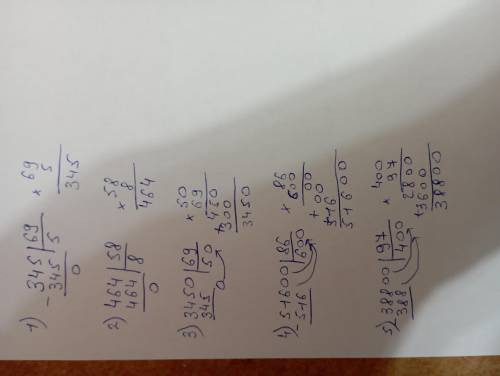 1) - 345 | 69 × 69
345 | 5 5
0 345
2) 464 | 58 × 58
464 | 8 8
0 464
3) 3450 | 69 × 50
345 | 50 69
0 + 450
300
3450
4) 51600 | 86 × 86
- 516 | 600 600
00
+ 00
516
51600
5) - 38800 | 97 × 400
388 | 400 97
2800
+ 3600
38800